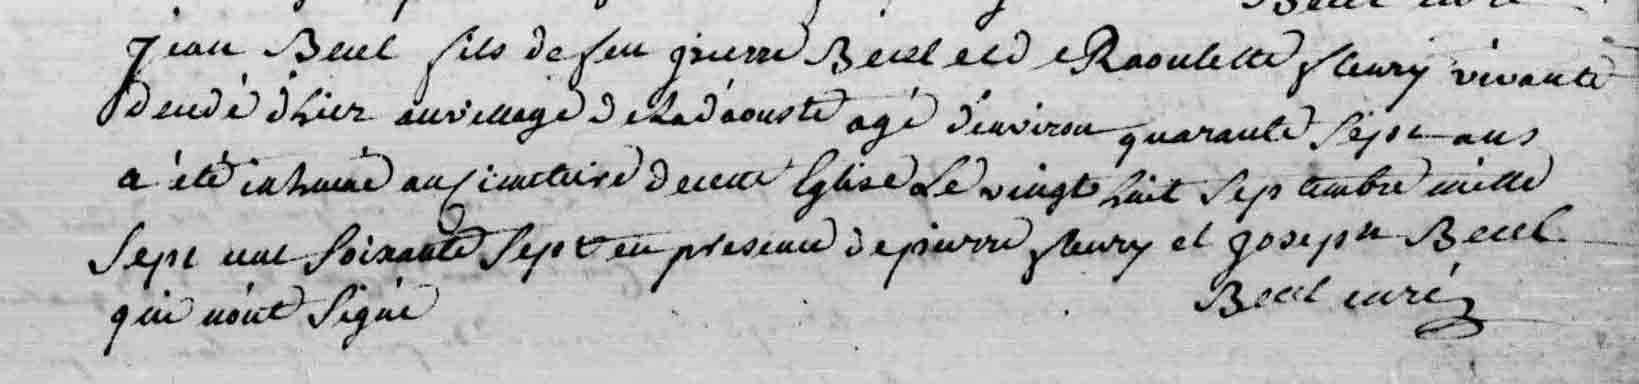 Becel curé
jean Becel fils de feu pierre Becel et de Raoulette fleury vivante
décédé d'hier au village de Ladaouste agé d'environ quarante sept ans
a été inhumé au cimetiere de cette Eglise Le vingt huit Septembre mille
Sept cent Soixante Sept en presence de pierre fleury et joseph Becel
qui n'ont Signé Becel curé